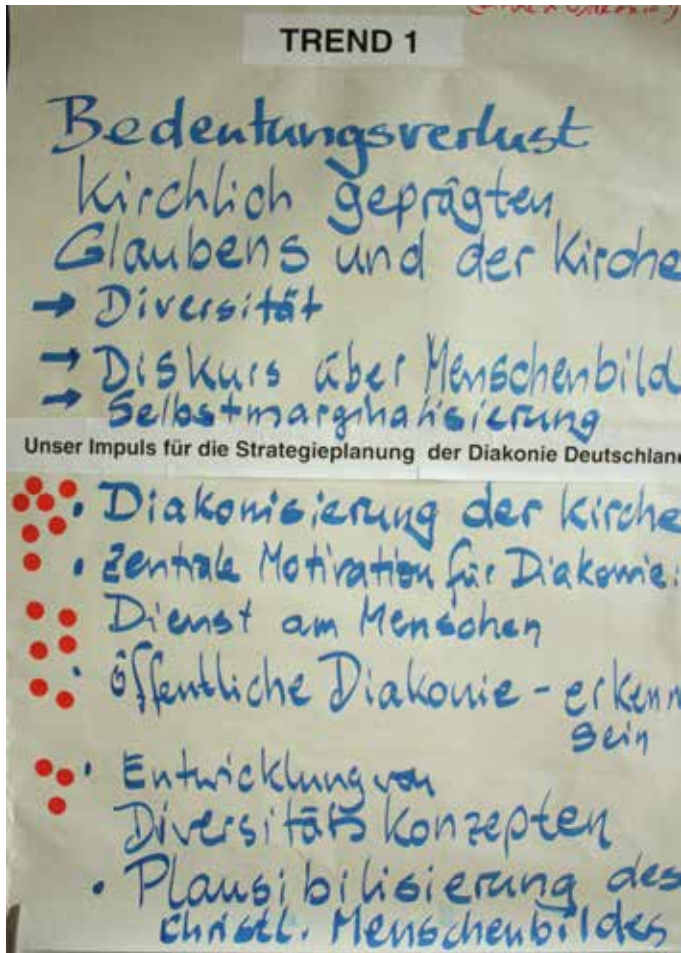 TREND 1
Bedeutungsverlust
kirchlich geprägten
Glaubens und der Kirche
→ Diversität
→ Diskurs über Menschenbild
→ Selbstmarginalisierung
Unser Impuls für die Strategieplanung der Diakonie Deutschland
• Diakonisierung der Kirche
• Zentrale Motivation für Diakonie:
Dienst am Menschen
• öffentliche Diakonie - erkenn
sein
• Entwicklung von
Diversitätskonzepten
• Plausibilisierung des
christl. Menschenbildes